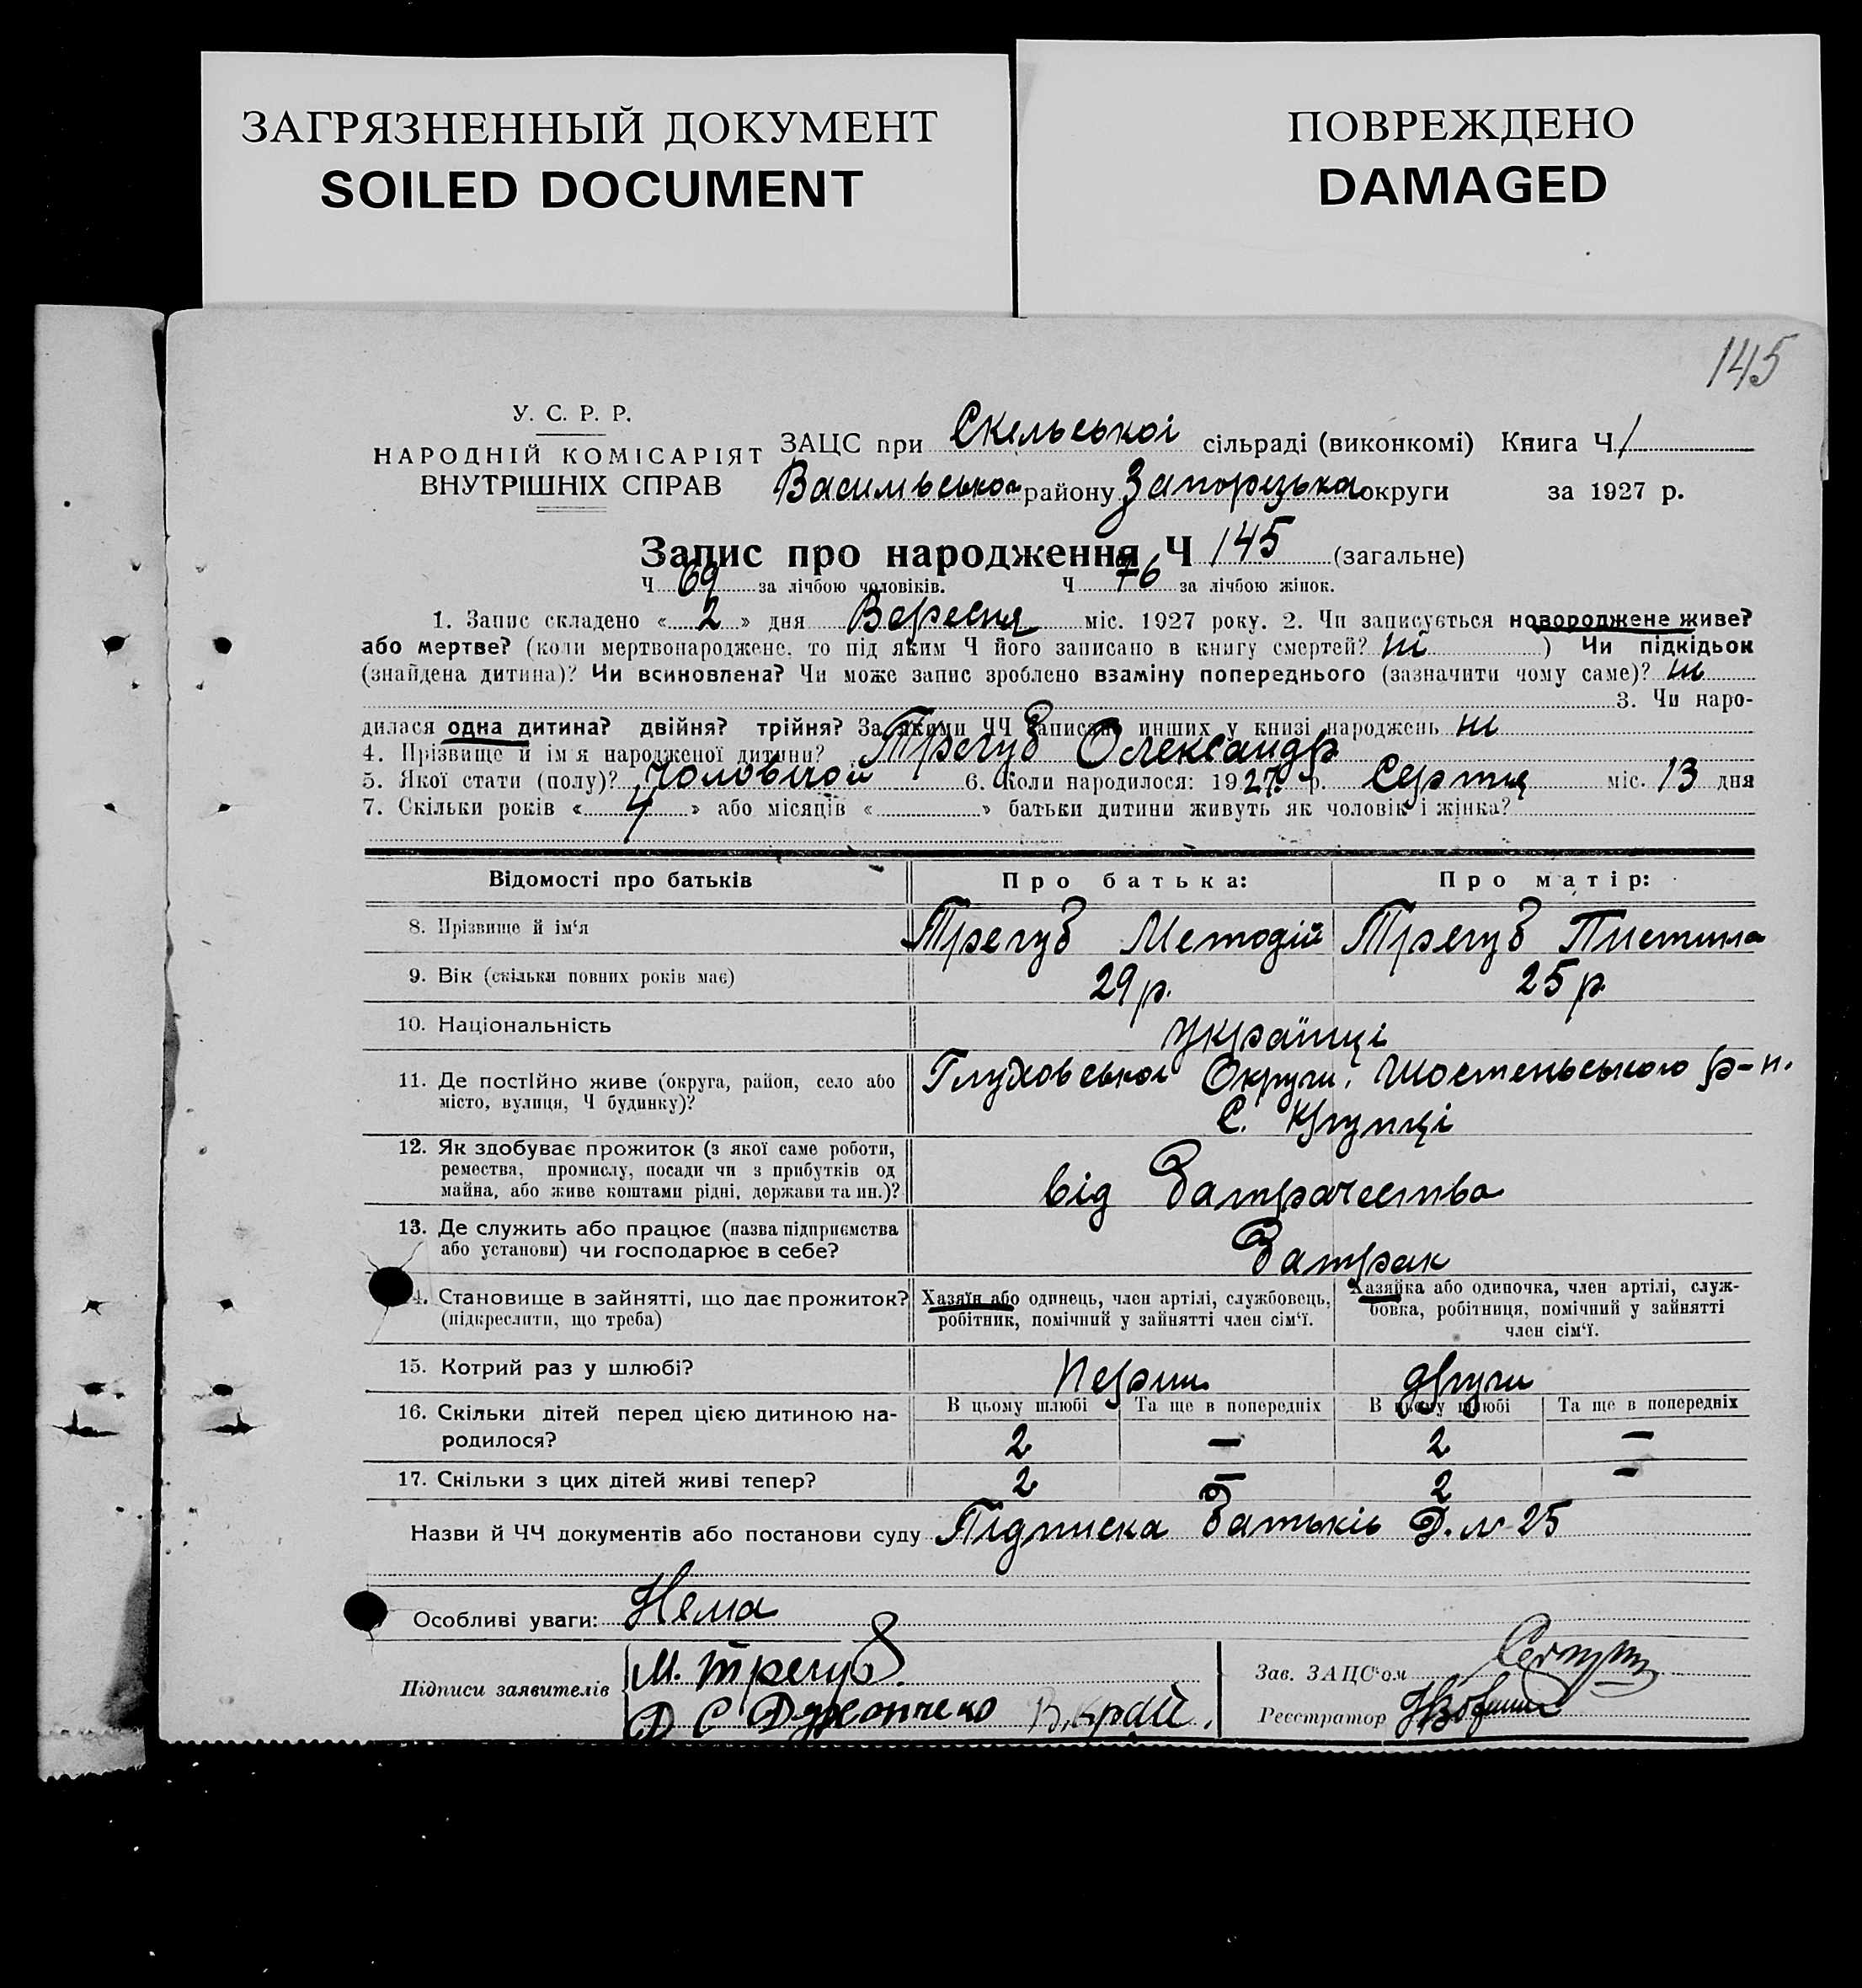 ЗАГРЯЗНЕННЫЙ ДОКУМЕНТ
SOILED DOCUMENT
ПОВРЕЖДЕНО
DAMAGED
145
У. С. Р. Р.
НАРОДНІЙ КОМІСАРІЯТ
ВНУТРІШНІХ СПРАВ
ЗАЦС при Скельської сільраді (виконкомі) Книга Ч 1
Васильської району Запорізька округи за 1927 р.
Запис про народження Ч 145 (загальне)
Ч 69 за лічбою чоловіків. Ч 76 за лічбою жінок.
1. Запис складено « 2 » дня Вересня міс. 1927 року. 2. Чи записується новороджене живе?
або мертве? (коли мертвонароджене, то під яким Ч його записано в книгу смертей? ні ) Чи підкідьок
(знайдена дитина)? Чи всиновлена? Чи може запис зроблено взаміну попереднього (зазначити чому саме)? ні
3. Чи наро-
дилася одна дитина? двійня? трійня? За якими ЧЧ записано инших у книзі народжень ні
4. Прізвище й ім'я народженої дитини? Трегуб Олександр
5. Якої стати (полу)? Чоловічой 6. Коли народилося: 1927 р. Серпня міс. 13 дня
7. Скільки років « 4 » або місяців « » батьки дитини живуть як чоловік і жінка?
Відомості про батьків Про батька: Про матір:
8. Прізвище й ім'я Трегуб Методій Трегуб Пистина
9. Вік (скільки повних років має) 29 р. 25 р.
10. Національність Українці
11. Де постійно живе (округа, район, село або Глуховської Округи, Шостенського р-н.
місто, вулиця, Ч будинку)? С. Крупці
12. Як здобуває прожиток (з якої саме роботи,
ремества, промислу, посади чи з прибутків од
майна, або живе коштами рідні, держави та ин.)? від батрачества
13. Де служить або працює (назва підприємства
або установи) чи господарює в себе? батрак
14. Становище в зайнятті, що дає прожиток? Хазяїн або одинець, член артілі, службовець, Хазяйка або одиночка, член артілі, служ-
(підкреслити, що треба) робітник, помічний у зайнятті член сім'ї. бовка, робітниця, помічний у зайнятті
член сім'ї.
15. Котрий раз у шлюбі? Перши други
16. Скільки дітей перед цією дитиною на- В цьому шлюбі Та ще в попередніх В цьому шлюбі Та ще в попередніх
родилося? 2 — 2 —
17. Скільки з цих дітей живі тепер? 2 — 2 —
Назви й ЧЧ документів або постанови суду Підписка батьків Д. № 25
Особливі уваги: Нема
Підписи заявителів М. Трегуб.
Зав. ЗАЦС'ом
Реєстратор